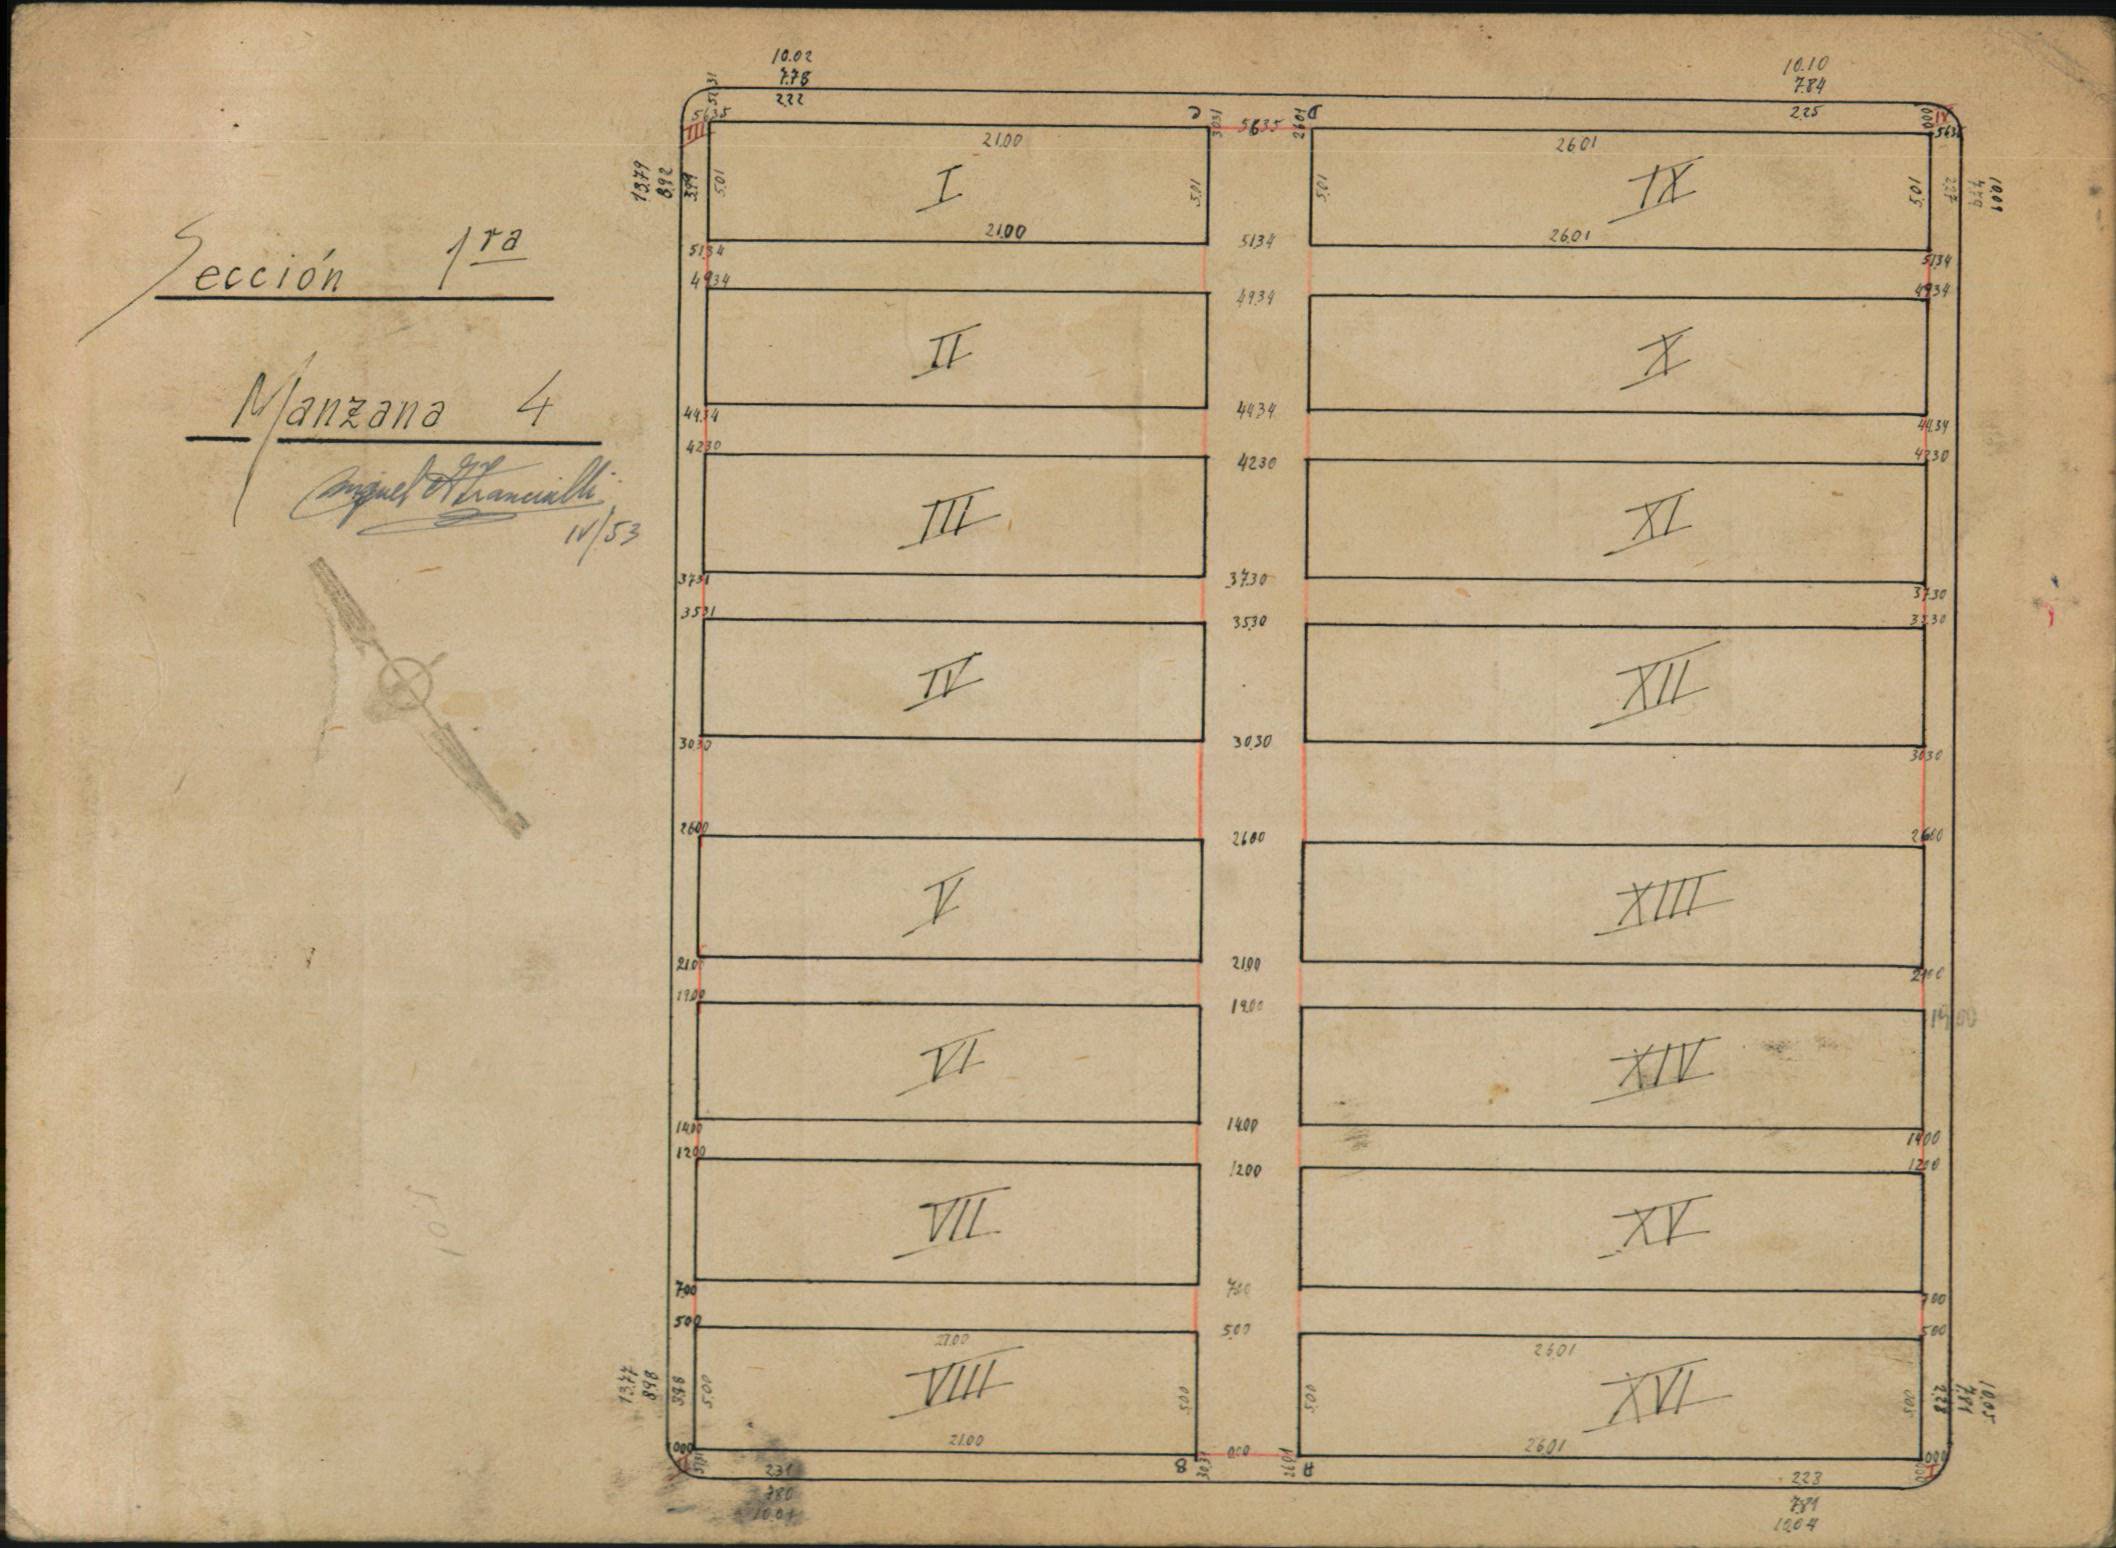 Sección 1ra
Manzana 4
IV/53
10.02
7.78
2.22
10.10
7.84
2.25
52.31
56.35
III
C
30.31
56.35
26.01
D
000
IV
56.35
13.79
8.92
3.99
5.01
21.00
I
5.01
21.00
5.01
26.01
IX
26.01
5.01
2.27
7.79
10.09
51.34
51.34
51.34
49.34
49.34
49.34
II
X
44.34
44.34
44.34
42.30
42.30
42.30
III
XI
37.31
37.30
37.30
35.31
35.30
35.30
IV
XII
30.30
30.30
30.30
26.00
26.00
26.00
V
XIII
21.00
21.00
21.00
19.00
19.00
19.00
VI
XIV
14.00
14.00
14.00
12.00
12.00
12.00
5.01
VII
XV
7.00
7.00
7.00
5.00
5.00
5.00
13.77
8.98
3.98
5.00
21.00
VIII
5.00
21.00
5.00
26.01
XVI
26.01
5.00
2.28
7.81
10.05
000
B
30.31
000
26.01
A
000
000
I
2.31
7.80
10.01
2.23
7.81
10.04